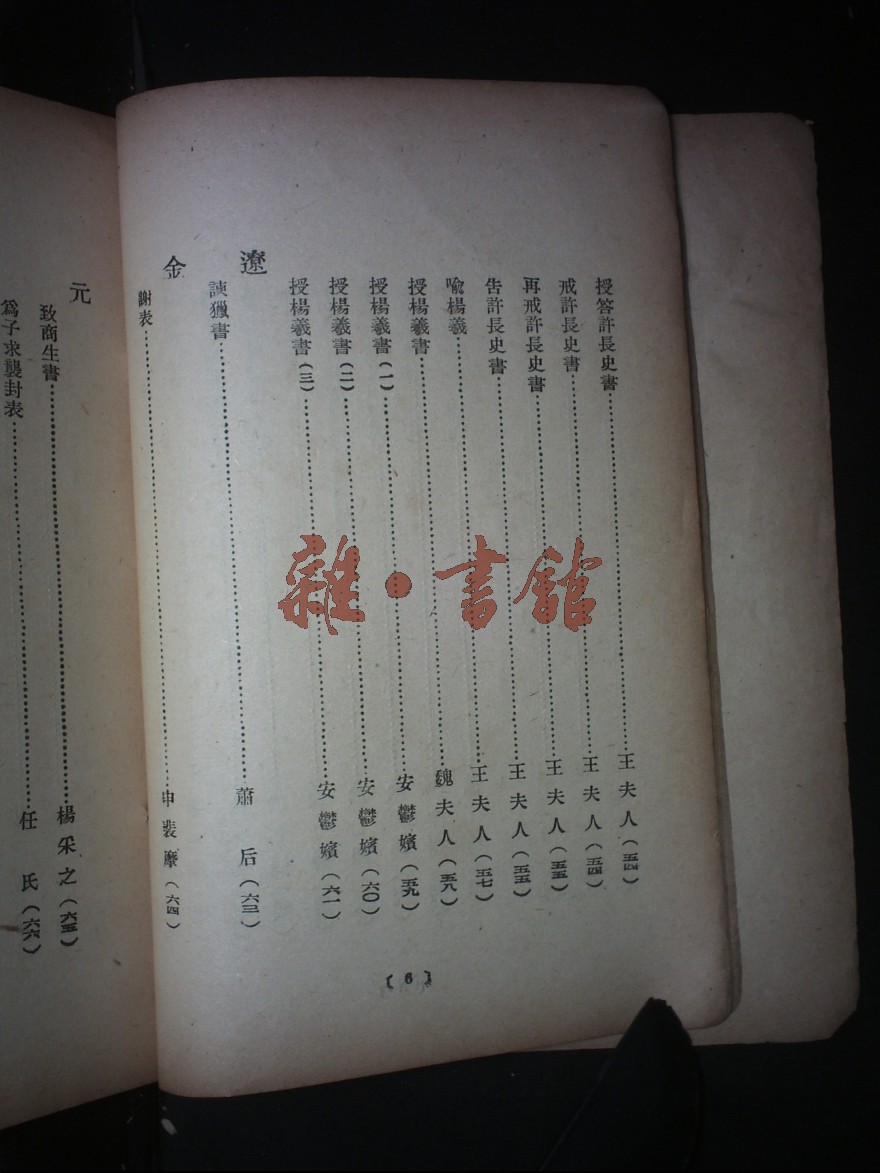 授答許長史書……王夫人(五四)
戒許長史書……王夫人(五四)
再戒許長史書……王夫人(五五)
告許長史書……王夫人(五五)
喩楊羲……王夫人(五七)
授楊羲書……魏夫人(五八)
授楊羲書(一)……安鬱嬪(五九)
授楊羲書(二)……安鬱嬪(六〇)
授楊羲書(三)……安鬱嬪(六一)
遼
諫獵書……蕭后(六三)
金
謝表……申裴摩(六四)
〔6〕
元
致商生書……楊采之(六五)
爲子求襲封表……任氏(六六)
雜·書館